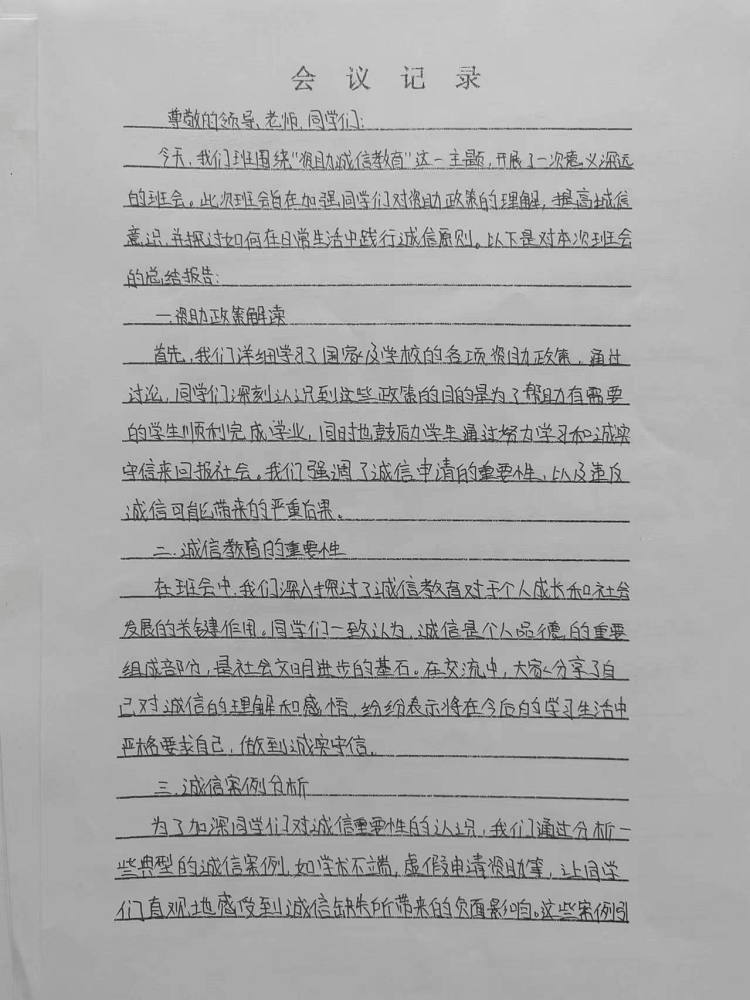 会议记录
尊敬的领导、老师、同学们:
今天,我们班围绕"资助诚信教育"这一主题,开展了一次意义深远
的班会。此次班会旨在加强同学们对资助政策的理解,提高诚信
意识,并探讨如何在日常生活中践行诚信原则。以下是对本次班会
的总结报告:
一.资助政策解读
首先,我们详细学习了国家及学校的各项资助政策,通过
讨论,同学们深刻认识到这些政策的目的是为了帮助有需要
的学生顺利完成学业,同时也鼓励学生通过努力学习和诚实
守信来回报社会。我们强调了诚信申请的重要性,以及违反
诚信可能带来的严重后果。
二.诚信教育的重要性
在班会中,我们深入探讨了诚信教育对于个人成长和社会
发展的关键作用。同学们一致认为,诚信是个人品德的重要
组成部分,是社会文明进步的基石。在交流中,大家分享了自
己对诚信的理解和感悟,纷纷表示将在今后的学习生活中
严格要求自己,做到诚实守信。
三.诚信案例分析
为了加深同学们对诚信重要性的认识,我们通过分析一
些典型的诚信案例,如学术不端,虚假申请资助等,让同学
们直观地感受到诚信缺失所带来的负面影响。这些案例引